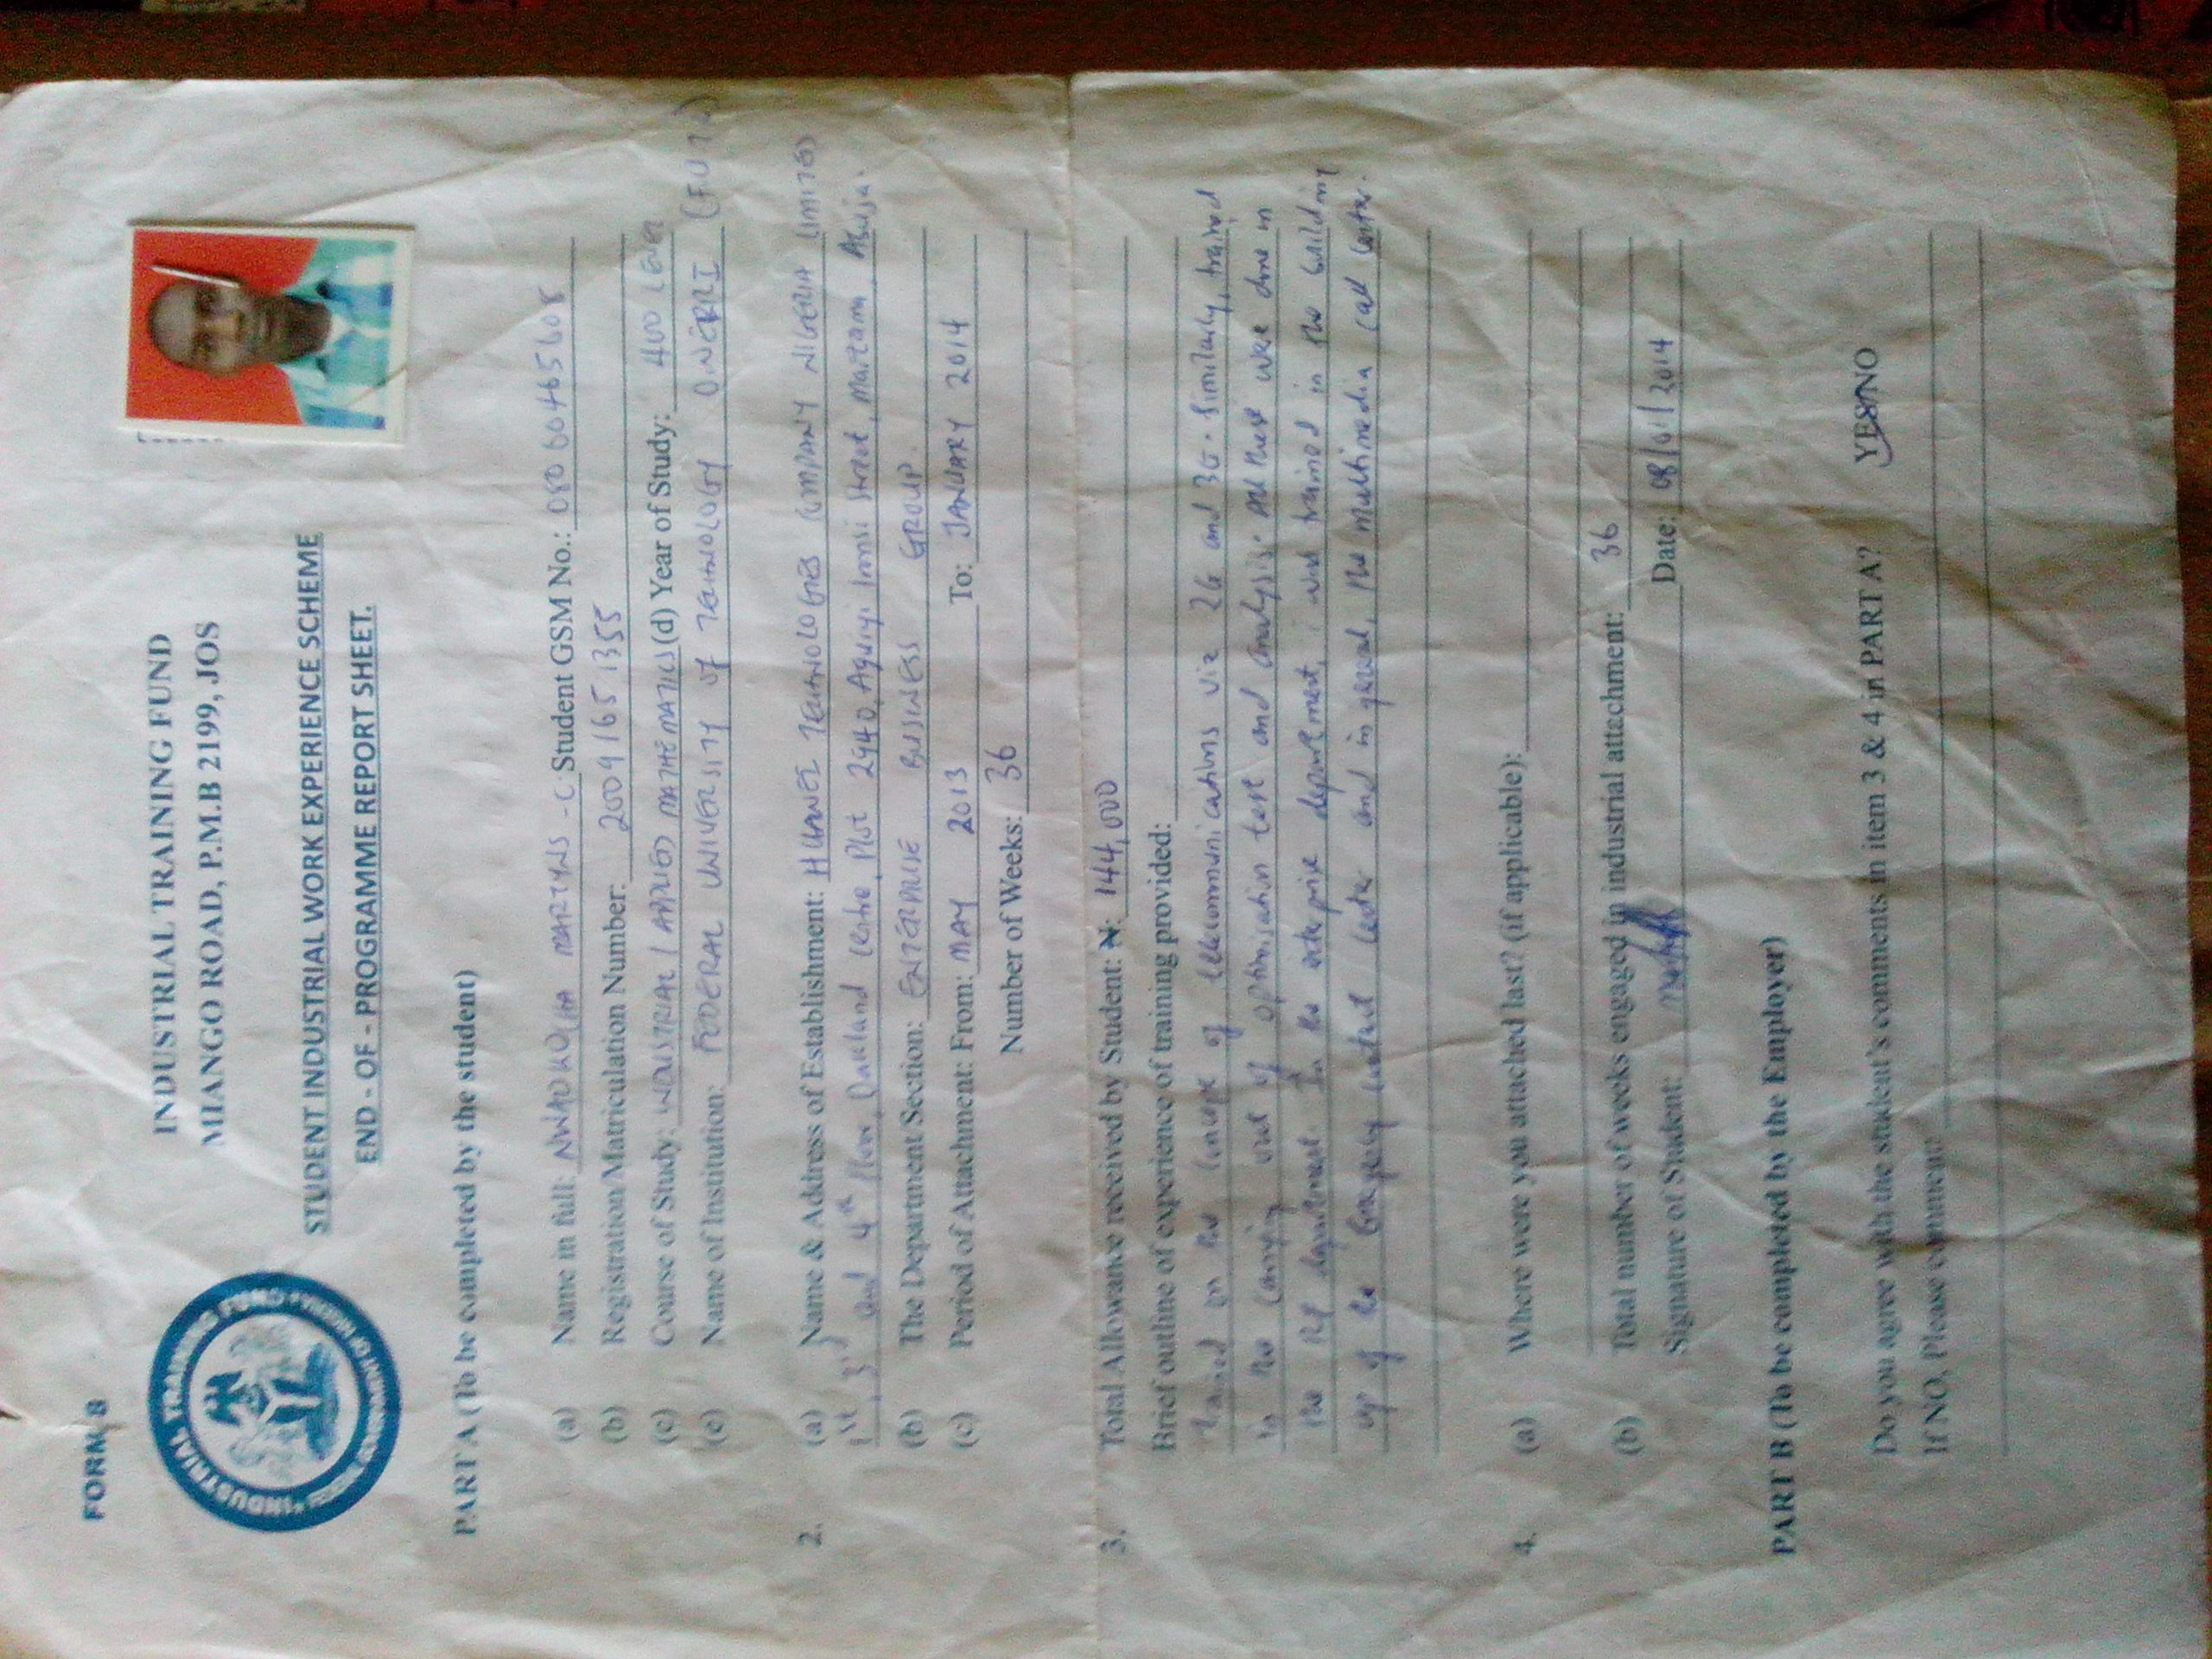 FORM 8
INDUSTRIAL TRAINING FUND
MIANGO ROAD, P.M.B 2199, JOS
STUDENT INDUSTRIAL WORK EXPERIENCE SCHEME
END - OF - PROGRAMME REPORT SHEET.
INDUSTRIAL TRAINING FUND
PART A (To be completed by the student)
(a) Name in full: NWADKOLHA MARTYNS - C Student GSM No.:
(b) Registration/Matriculation Number: 20091651355
(c) Course of Study: INDUSTRIAL (APPLIED) MATHEMATICS (d) Year of Study: 400 LEVEL
(e) Name of Institution: FEDERAL UNIVERSITY OF TECHNOLOGY OWERRI (FUTO)
2. (a) Name & Address of Establishment: HUAWEI TECHNOLOGIES COMPANY NIGERIA LIMITED
1st, 3rd and 4th floor, Plot 2940, Aguiyi Ironsi Street, Maitama Abuja.
(b) The Department Section: ENTERPRISE BUSINESS GROUP.
(c) Period of Attachment: From: MAY 2013 To: JANUARY 2014
Number of Weeks: 36
3. Total Allowance received by Student: N: 144,000
Brief outline of experience of training provided:
trained on the concept of telecommunications viz 2G and 3G. Similarly, trained
in the carrying out of optimisation test and analysis. All these were done in
the RF department. In the enterprise department, i was trained in the building
up of the Emergency contact center and in general, the multimedia call center.
4. (a) Where were you attached last? (if applicable):
(b) Total number of weeks engaged in industrial attachment: 36
Signature of Student: Date: 08/01/2014
PART B (To be completed by the Employer)
Do you agree with the student's comments in item 3 & 4 in PART A? YES/NO
If NO, Please comment